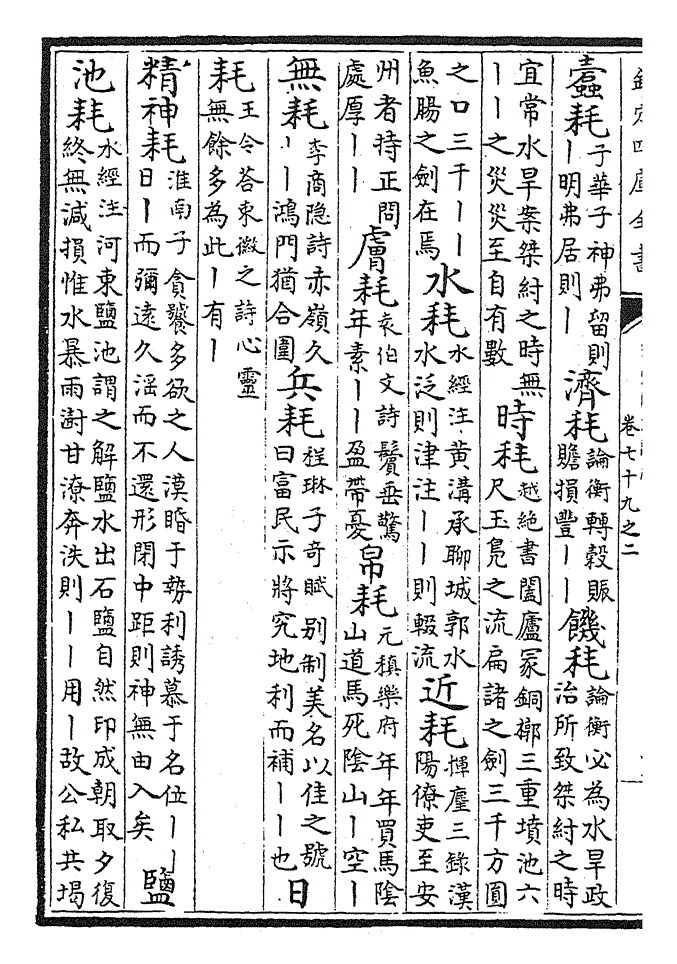 欽定四庫全書
卷七十九之二
蠧耗
子華子神弗留則
｜明弗居則｜
濟耗
論衡轉穀賑
贍損豐｜｜
饑耗
論衡必為水旱政
治所致桀紂之時
宜常水旱案桀紂之時無
｜｜之災災至自有數
時耗
越絶書闔廬冢銅槨三重墳池六
尺玉鳬之流扁諸之劍三千方圓
之口三千｜｜
魚腸之劍在焉
水耗
水經注黄溝承聊城郭水
水泛則津注｜｜則輟流
近耗
揮麈三錄漢
陽僚吏至安
州者持正問
處厚｜｜
膚耗
袁伯文詩鬢垂驚
年素｜｜盈帶憂
帛耗
元稹樂府年年買馬陰
山道馬死陰山｜空｜
無耗
李商隐詩赤嶺久
｜｜鴻門猶合圍
兵耗
程琳子奇賦别制美名以佳之號
曰富民示將究地利而補｜｜也
日
耗
王令荅束徽之詩心靈
無餘多為此｜有｜
精神耗
淮南子貪饕多欲之人漠睧于勢利誘慕于名位｜｜
日｜而彌遠久淫而不還形閉中距則神無由入矣
鹽
池耗
水經注河東鹽池謂之解鹽水出石鹽自然印成朝取夕復
終無減損惟水暴雨澍甘潦奔泆則｜｜用｜故公私共堨